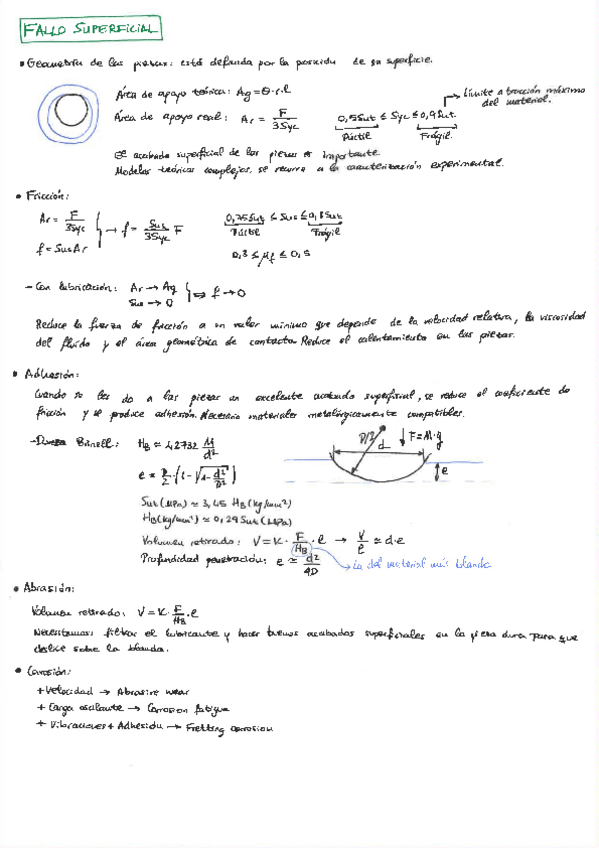 FALLO SUPERFICIAL
• Geometría de las piezas: está definida por la posición de su superficie.
Área de apoyo teórica: Ag = θ·r·l
Límite a tracción máximo del material.
Área de apoyo real: Ar = F/3Syc
0,5Sut ≤ Syc ≤ 0,9Sut
Dúctil
Frágil
El acabado superficial de las piezas es importante
Modelos teóricos complejos, se recurre a la caracterización experimental.
• Fricción:
Ar = F/3Syc
f = Sus Ar
→ f = Sus/3Syc F
0,75Sut ≤ Sus ≤ 0,8Sut
Dúctil
Frágil
0,3 ≤ μf ≤ 0,5
- Con lubricación: Ar → Ag
Sus → 0
⇒ f → 0
Reduce la fuerza de fricción a un valor mínimo que depende de la velocidad relativa, la viscosidad
del fluido y el área geométrica de contacto. Reduce el calentamiento en las piezas.
• Adhesión:
Cuando se les da a las piezas un excelente acabado superficial, se reduce el coeficiente de
fricción y se produce adhesión. Necesario materiales metalúrgicamente compatibles.
- Dureza Brinell: HB ≃ 1,2732 M/d²
e = D/2·(1-√(1-d²/D²))
D/2
d
F=M·g
e
Sut (MPa) ≃ 3,45 HB (kg/mm²)
HB (kg/mm²) ≃ 0,29 Sut (MPa)
Volumen retirado: V = K · F/HB · l → V/l ≃ d·e
Profundidad penetración: e ≃ d²/4D
La del material más blando
• Abrasión:
Volumen retirado: V = K · F/HB · l
Necesitamos: filtrar el lubricante y hacer buenos acabados superficiales en la pieza dura para que
deslice sobre la blanda.
• Corrosión:
+ Velocidad → Abrasive wear
+ Carga oscilante → Corrosion fatigue
+ Vibraciones + Adhesión → Fretting corrosion